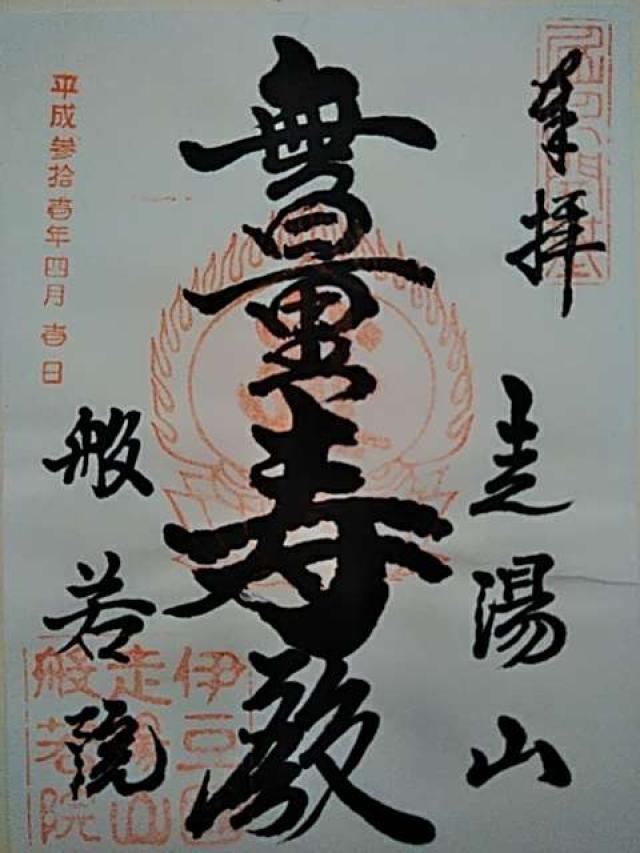 奉拝
走湯山
無量寿殿
平成参拾壱年四月壱日
般若院
伊豆國
走湯山
般若院